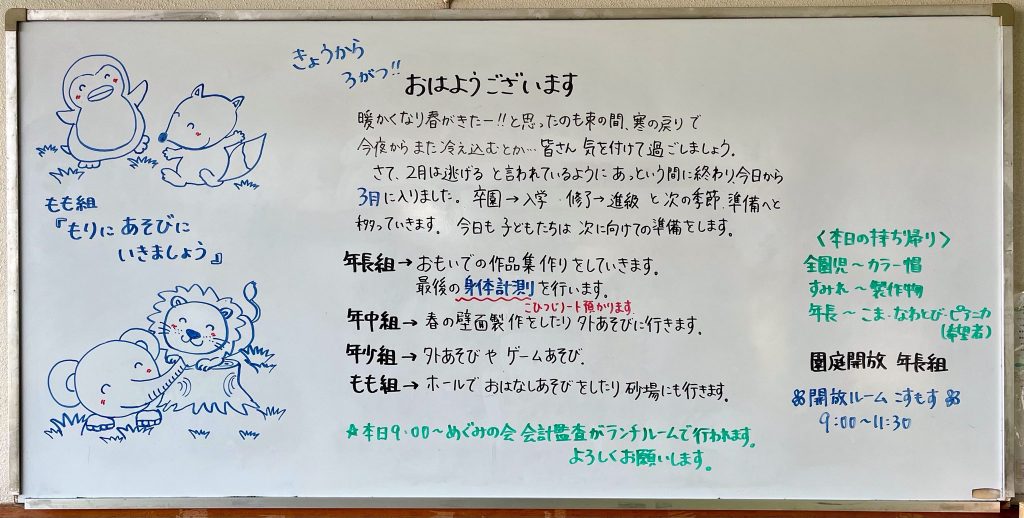 きょうから
3がつ!!
おはようございます
暖かくなり春がきたー!!と思ったのも束の間、寒の戻りで
今夜からまた冷え込むとか…皆さん気を付けて過ごしましょう。
さて、2月は逃げると言われているようにあっという間に終わり、今日から
3月に入りました。卒園→入学 修了→進級 と次の季節、準備へと
移っていきます。今日も子どもたちは次に向けての準備をします。
もも組
『もりにあそびに
いきましょう』
年長組→おもいでの作品集作りをしていきます。
最後の身体計測を行います。
こひつじノート預かります。
年中組→春の壁面製作をしたり外あそびに行きます。
年少組→外あそびやゲームあそび。
もも組→ホールでおはなしあそびをしたり砂場にも行きます。
☆本日9:00~めぐみの会 会計監査がランチルームで行われます。
よろしくお願いします。
〈本日の持ち帰り〉
全園児~カラー帽
すみれ~製作物
年長~こま・なわとび・ピアニカ
(希望者)
園庭開放 年長組
開放ルーム こすもす
9:00~11:30